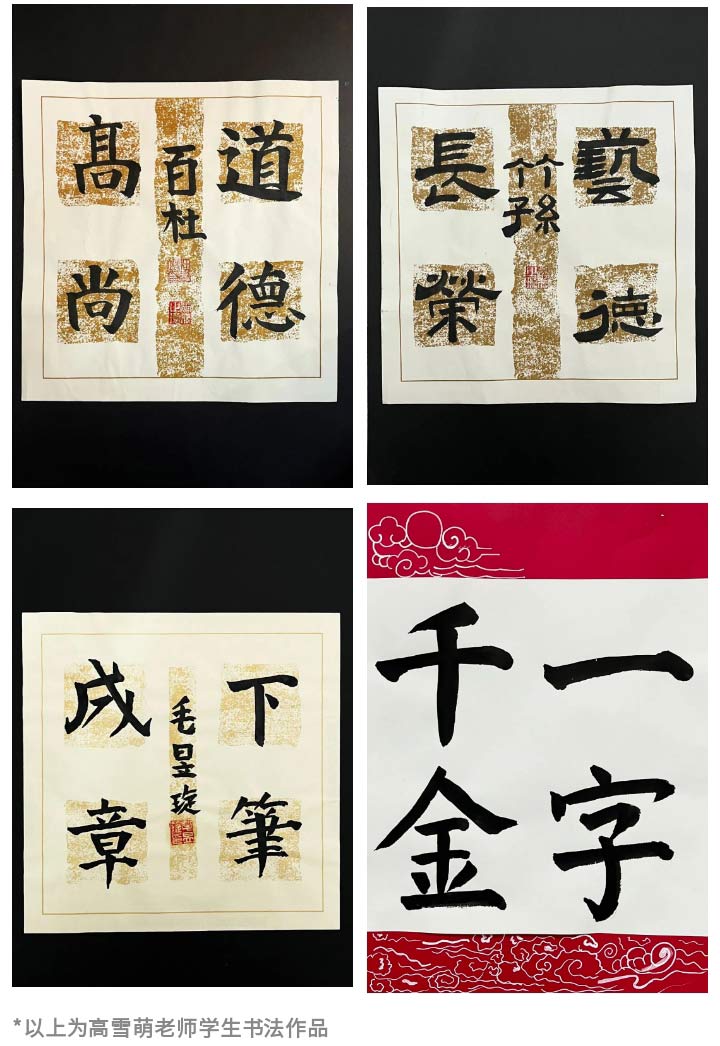 道德
髙尚
百杜
藝德
長榮
竹孫
下筆
成章
毛昱
一字
千金
*以上为高雪萌老师学生书法作品